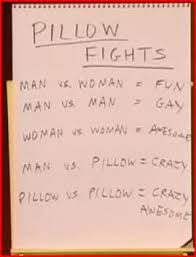 PILLOW
FIGHTS
MAN VS. WOMAN = FUN
MAN VS MAN = GAY
WOMAN VS WOMAN = AWESOME
MAN VS. PILLOW = CRAZY
PILLOW VS PILLOW = CRAZY
AWESOME